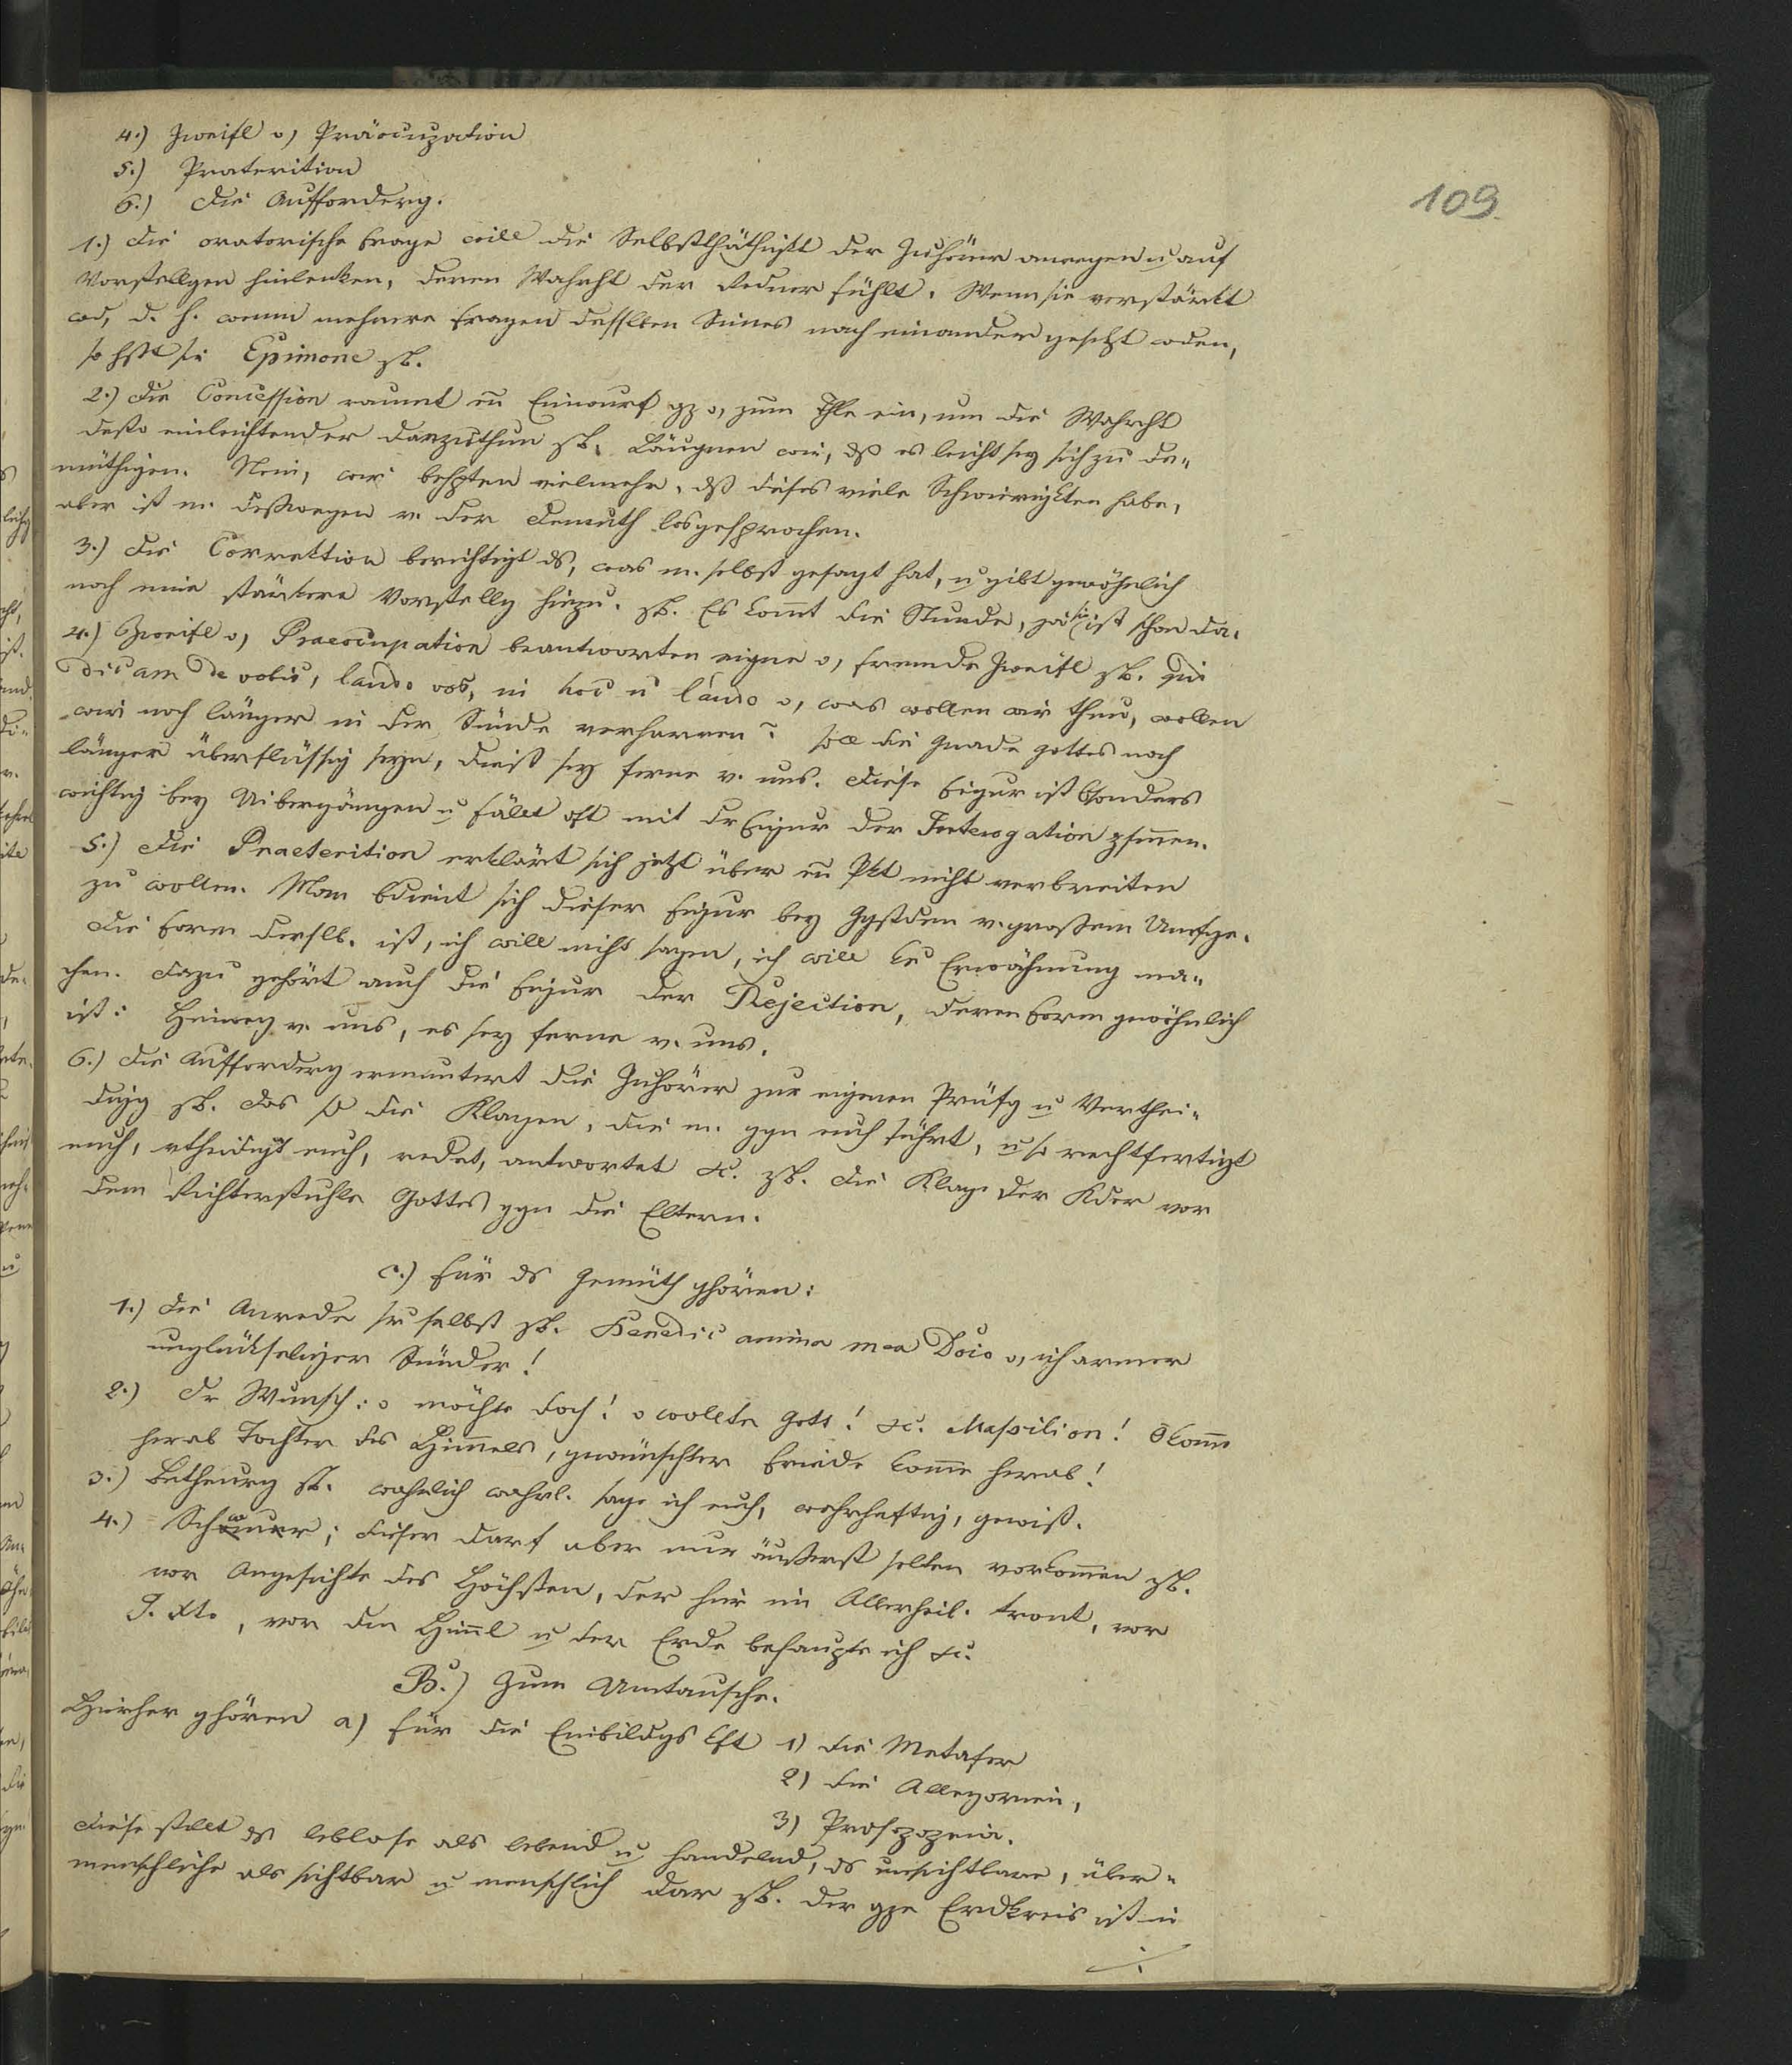 109.
4.) Zweifl o, Präocuzpation
5.) Praterition
6.) Die Aufforderg.
1.) Die oratorische Frage will die Selbstthäthigkt der Zuhörer anregen u auf
Vorstellgen hinlenken, deren Wahrht der Redner fühlt. Wenn sie verstärkt
wd, d. h. wenn mehrere Fragen desselben Sinnes nach einander gesetzt wden,
so hßt sie Epimone zB.
2.) Die Concession raumt en Einwurf gz o, zum Thle ein, um die Wahrht
desto einleuchtender darzuthun zB. Läugnen wir, dß es leicht sey sich zu de-
müthigen. Nein, wir behpten vielmehr, dß dieses viele Schwierigkten habe,
aber ist m. deßwegen v. der Demuth losgesprochen.
3.) Die Correktion berichtigt ds, was m. selbst gesagt hat, u gibt gewöhnlich
noch eine stärkere Vorstellg hinzu. zB. Es komt die Stunde, ja sie ist schon da.
4.) Zweifl o, Praeocupation beantworten eigne o, fremde Zweifl zB. quid
dicam de vobis, laudo vos, in hoc n laudo o, was wollen wir thun, wollen
wir noch länger in der Sünde verharren? soll die Gnade Gottes noch
länger überflüssig seyn, dieß sey ferne v. uns. Diese Figur ist bsonders
wichtig bey Uibergängen u fällt oft mit dr Figur der Interogation zsmen.
5.) Die Praeterition erklärt sich jetzt über en Pkt nicht verbreiten
zu wollen. Man bdient sich dieser Figur bey Ggstden v. großem Umfge.
Die Form derslb. ist, ich will nicht sagen, ich will ke Erwähnung ma-
chen. Dazu gehört auch die Figur der Rejection, deren Form gewöhnlich
ist: Hinweg v. uns, es sey ferne v. uns.
6.) Die Aufforderg ermuntert die Zuhörer zur eigenen Prüfg u Verthei-
digg zB. das sd die Klagen, die m. ggn euch führt, u so rechtfertigt
euch, vtheidigt euch, redet, antwortet &c. zB. die Klage der Kder vor
dem Richterstuhle Gottes ggn die Eltern.
c.) Für ds Gemüth ghören:
1.) Die Anrede sr selbst zB. Benedic anima mea Dno o, ich armer
unglückseliger Sünder!
2.) Dr Wunsch: o möchte doch! o wollte Gott! &c. Massilion! O kome
herab Tochter des Himmels, gewünschter Friede kome herab!
3.) Betheurg zB. wahrlich wahrl. sage ich euch, wahrhaftig, gewiß.
4.) Schwur; dieser darf aber nur äußerst selten vorkomen zB.
vor Angesichte des Höchsten, der hier im Allerheil. tront, vor
J. Xto, vor dem Himl u der Erde behaupte ich &c.
B.) Zum Umtausche.
Hieher ghören a) für die Einbildgs kft 1) die Metafer
2) die Allegorien,
3) Prosopopeia.
Diese stellt ds leblose als lebend u handelnd, ds unsichtbare, über-
menschliche als sichtbar u menschlich dar zB. der gze Erdkreis ist in